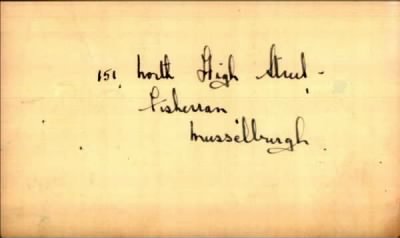 151 North High Street -
Fisherran
Musselburgh.